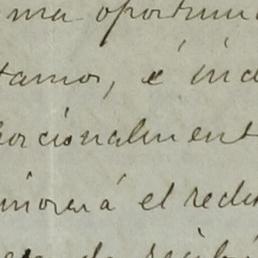 ma oportun
tamos, é ind
orcionalment
inorará el redu